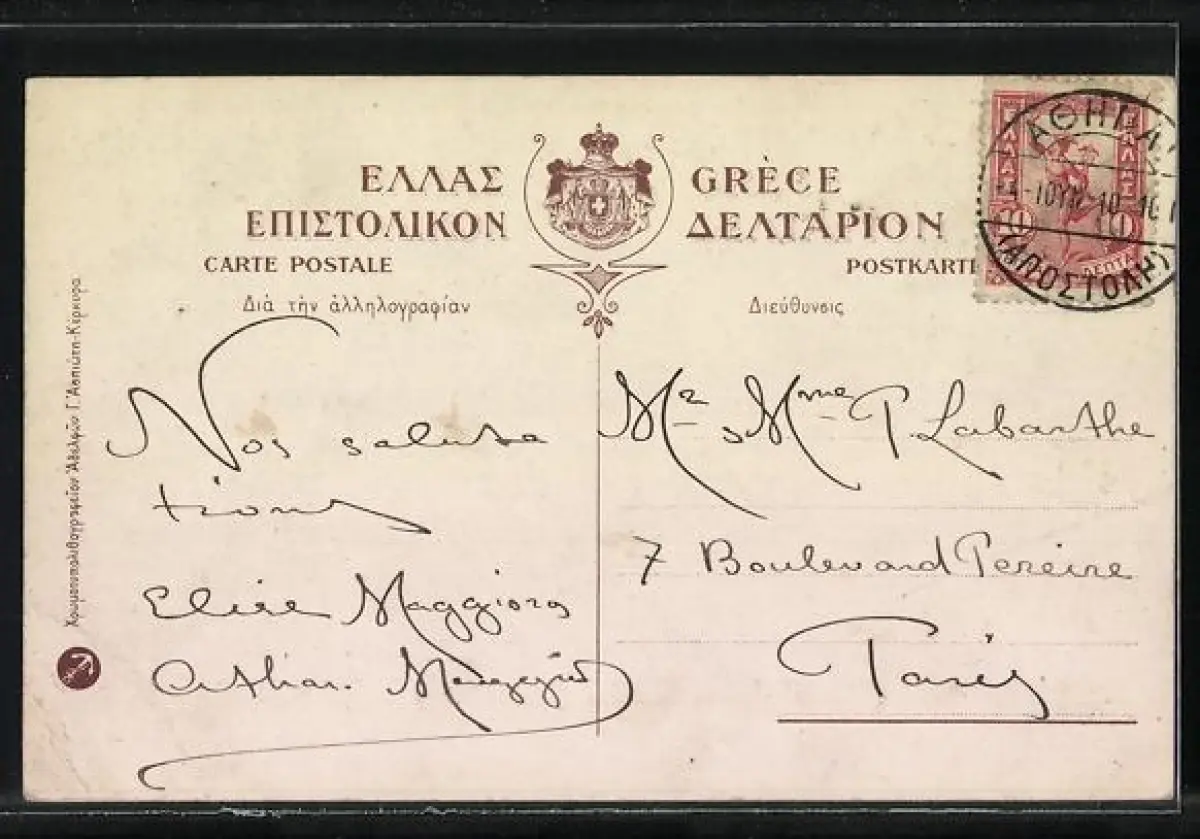 ΕΛΛΑΣ GRÈCE
ΕΠΙΣΤΟΛΙΚΟΝ ΔΕΛΤΑΡΙΟΝ
CARTE POSTALE POSTKARTE
Διὰ τὴν ἀλληλογραφίαν Διεύθυνσις
ΕΛΛΑΣ
ΕΛΛΑΣ
10 10
ΛΕΠΤΑ
ΑΘΗΝΑΙ
ΙΟΥΝ 10
ΑΠΟΣΤΟΛΗ
Χρωμοτυπολιθογραφεῖον Ἀδελφῶν Γ. Ἀσπιώτη-Κέρκυρα
Nos saluta
tions
Elise
Athan.
Mr Mme P. Labarthe
7 Boulevard Pereire
Paris